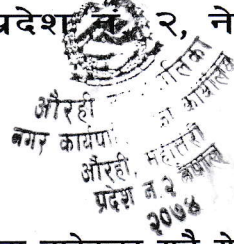 प्रदेश नं. २, ने
औरही पालिका
नगर कार्यपा का कार्यालय
औरही, महोत्तरी
प्रदेश नं. २ नेपाल
२०७४